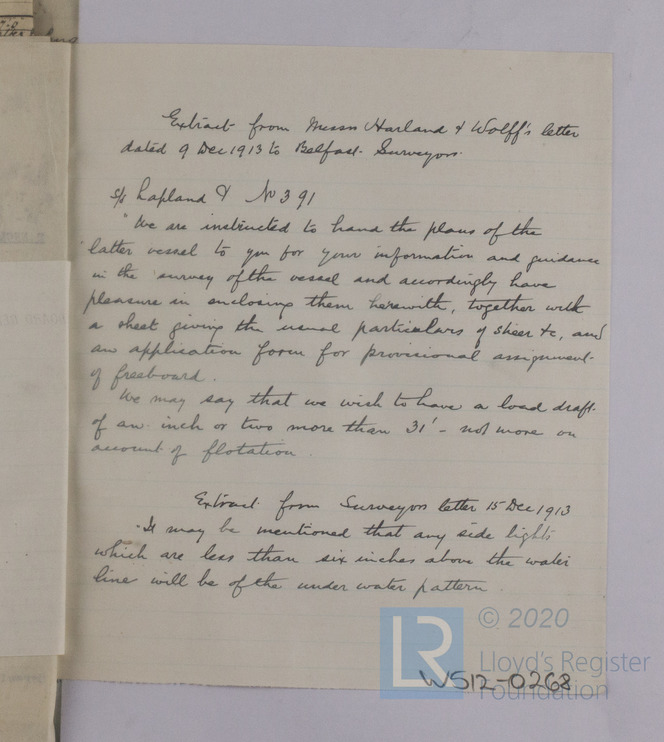 Extract from Messrs Harland & Wolff's letter
dated 9 Dec 1913 to Belfast Surveyors.
s/s Lapland & No 391
"We are instructed to hand the plans of the
latter vessel to you for your information and guidance
in the survey of the vessel and accordingly have
pleasure in enclosing them herewith, together with
a sheet giving the usual particulars of sheer &c, and
an application form for provisional assignment
of freeboard.
We may say that we wish to have a load draft
of an inch or two more than 31' - not more on
account of flotation.
Extract from Surveyors letter 15 Dec 1913
"It may be mentioned that any side lights
which are less than six inches above the water
line will be of the under water pattern.
© 2020
LR
Lloyd's Register
Foundation
W512-0268